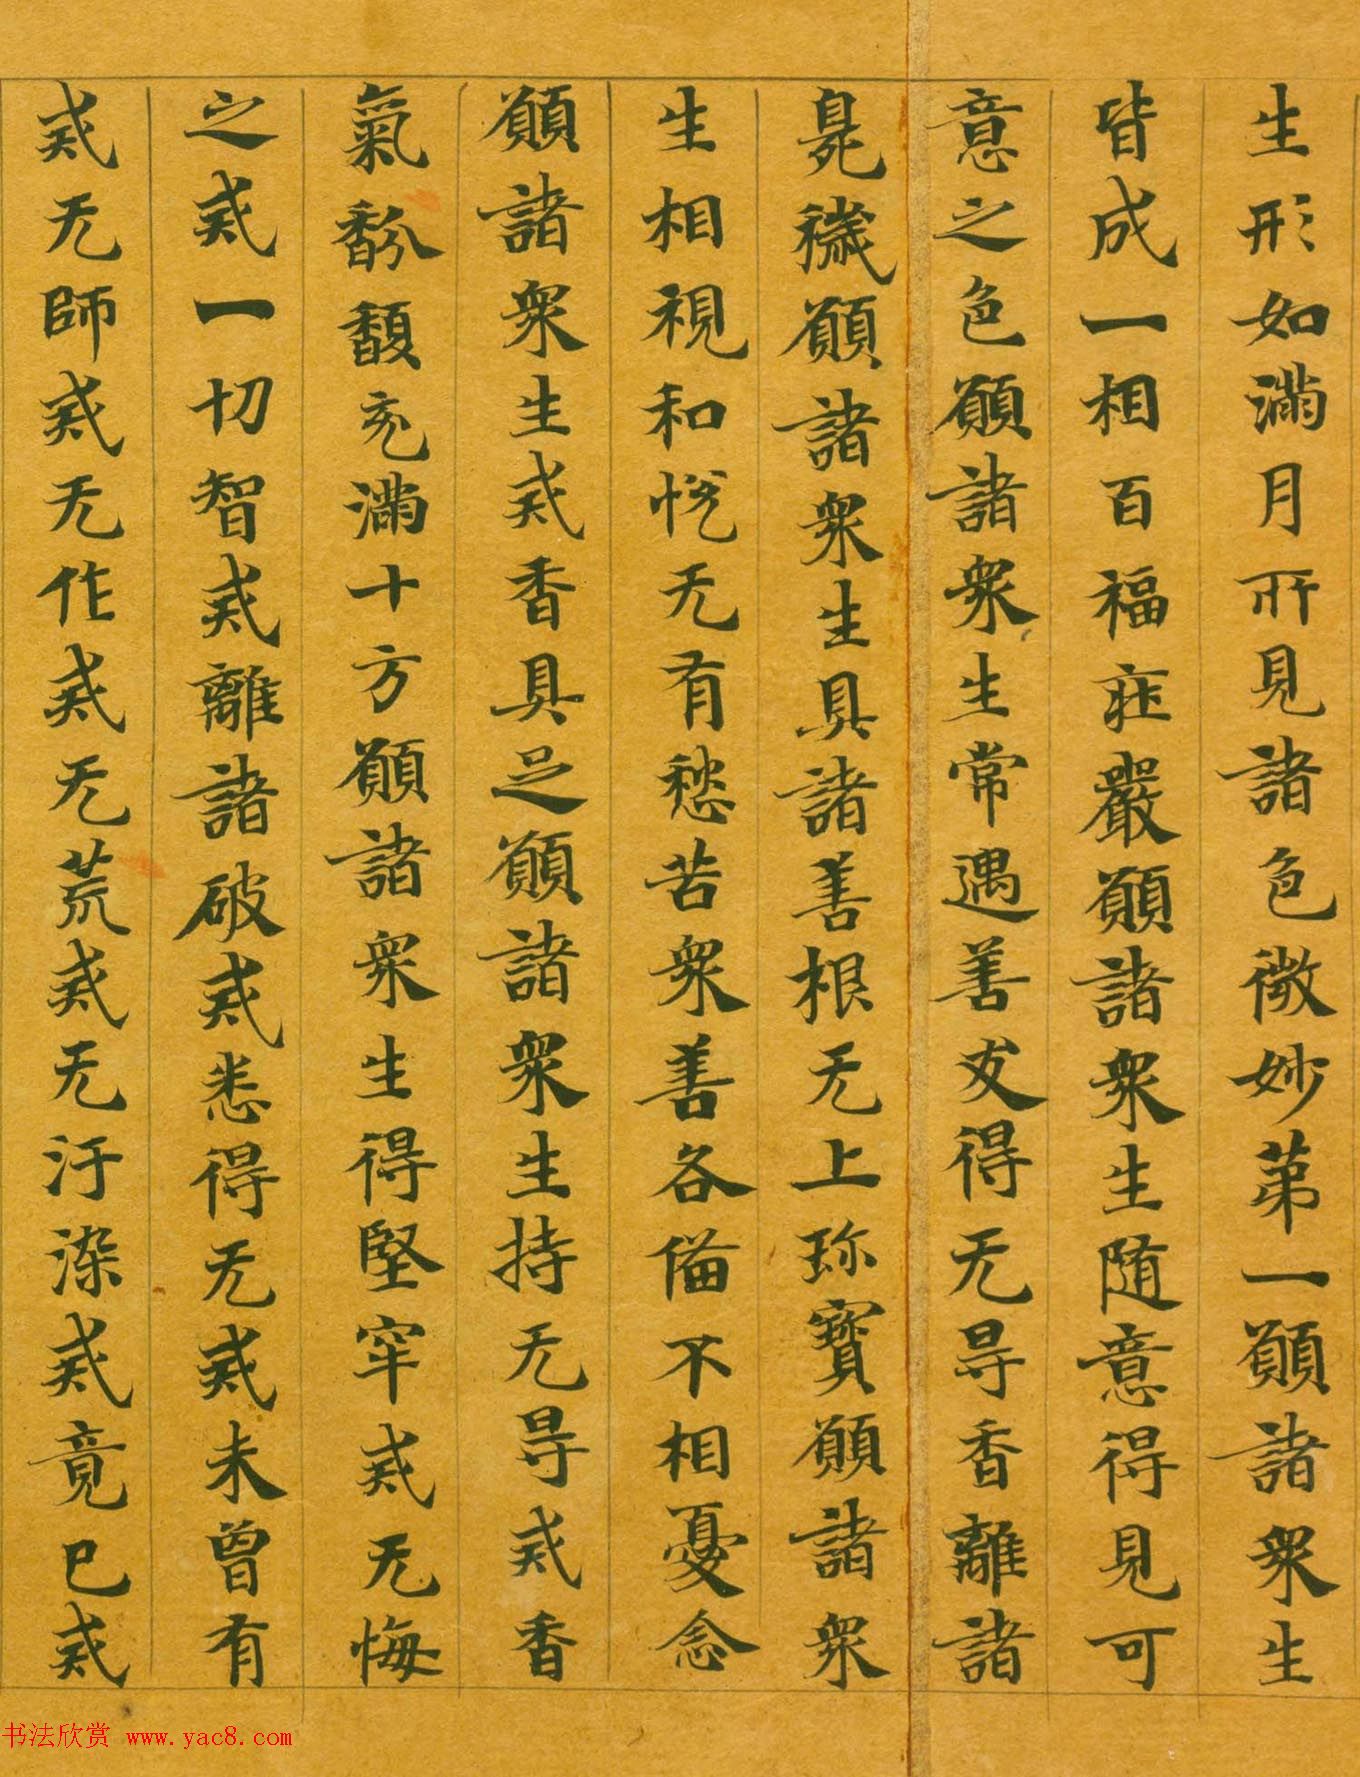 生形如滿月所見諸色微妙第一願諸衆生
皆成一相百福莊嚴願諸衆生隨意得見可
意之色願諸衆生常遇善友得无㝵香離諸
臭穢願諸衆生具諸善根无上珎寶願諸衆
生相視和悅无有愁苦衆善各俻不相憂念
願諸衆生戒香具足願諸衆生持无㝵戒香
氣馚馥充滿十方願諸衆生得堅牢戒无悔
之戒一切智戒離諸破戒悉得无戒未曾有
戒无師戒无作戒无荒戒无汙染戒竟已戒
书法欣赏 www.yac8.com